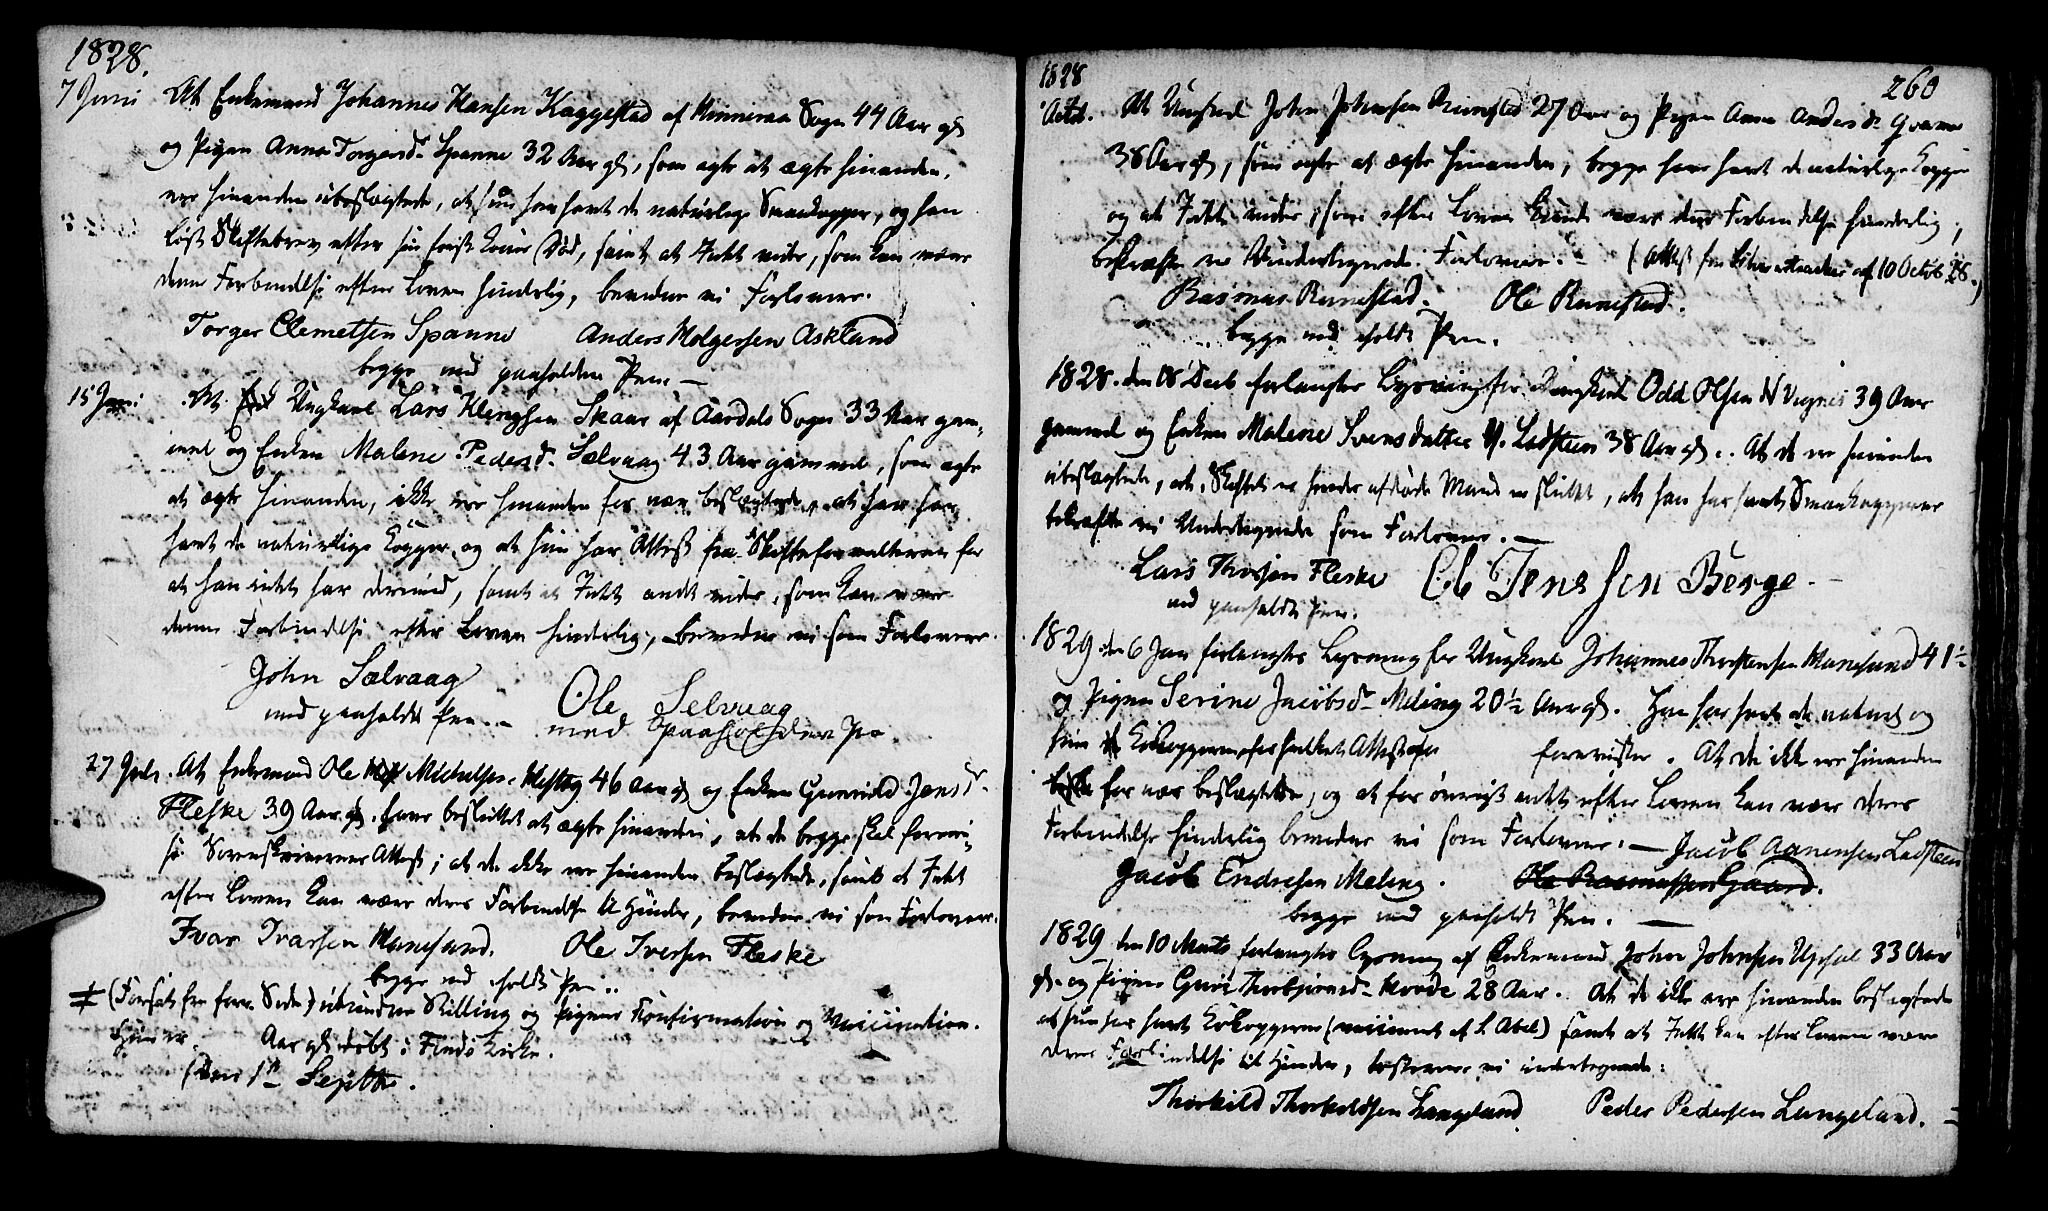 1828.
7 Juni At Enkemand Johannes Hansen Kaggestad af Sogn 44 Aar gl
og Pigen Anna Torgersd. Spanne 32 Aar gl, som agte at ægte hinanden,
ere hinanden ubeslægtede, at hun har havt de naturlige Smaakopper, og han
løst Skiftebrev efter sin første Kones Død, samt at Intet vides, som kan være
denne Forbindelse efter Loven hinderlig, bevidne vi Forlovere.
Torger Clemetsen Spanne Anders Holgersen Askland
begge med paaholden Pen. —
15 Juni At Ungkarl Lars Klengsen Skaar af Aardals Sogn 33 Aar gam-
mel og Enken Malene Pedersd. Sælvaag 43 Aar gammel, som agte
at ægte hinanden, ikke ere hinanden for nær beslægtede, at han har
havt de naturlige Kopper, og at hun har Attest fra Skifteforvalteren for
at han intet har derimod, samt at Intet andet vides, som kan være
denne Forbindelse efter Loven hinderlig, bevidne vi som Forlovere.
John Sælvaag
med paaholdt Pen. — Ole Selvaag
med paaholden Pen.
27 Juli. At Enkemand Ole Michelsen 46 Aar gl og Enken Gunnild Jensd.
Fleske 39 Aar gl. have besluttet at ægte hinanden, at de begge skal forevi-
se Sorenskriverens Attest; at de ikke ere hinanden beslægtede, samt at Intet
efter Loven kan være deres Forbindelse til Hinder, bevidne vi som Forlovere.
Ivar Ivarsen Manesand. Ole Iversen Fleske
begge med holdt Pen..
(Forsat fra forr. Side) Skilling og Pigens Confirmation og Vaccination.
Hun er Aar gl døbt i Finds Kirke.
(Den 1ste Septbr.
1828 260
Octob. At Ungkarl John Johnsen Runestad 27 Aar og Pigen Anna Andersd.
38 Aar gl, som agte at ægte hinanden, begge have havt de naturlige Kopper
og at Intet vides, som efter Loven kunde være denne Forbindelse hinderlig,
bekræfte vi Undertegnede Forlovere. — (Attest fra af 10 Octob 28.)
Rasmus Runestad. Ole Runestad.
begge med holdt Pen.
1828. den 18 Decb forlangtes Lysning for Ungkarl Odd Olsen N Vignes 39 Aar
gammel og Enken Malene Svensdatter Y. Ladsteen 38 Aar gl.. At de ere hinanden
ubeslægtede, at Skiftet er hendes afdøde Mand er sluttet, at han har havt Smaakopperne
bekræfte vi Undertegnede som Forlovere. —
Lars Thorsen Fleske Ole Jensen Berge. —
med paaholdt Pen.
1829 den 6 Jan forlangtes Lysning for Ungkarl Johannes Thorstensen Manesand 41 ½
og Pigen Serine Jacobsd. Meling 20 ½ Aar gl. Han har havt de naturl og
hun Kokopperne, for hvilket Attest forevistes. At de ikke ere hinanden
for nær beslægtede, og at for øvrigt intet efter Loven kan være deres
Forbindelse hinderlig bevidner vi som Forlovere. — Jacob Aanensen Ladsteen
Jacob Endresen Meling. Ole Rasmussen Gaard.
begge med paaholdt Pen. —
1829 den 10 Marts forlangte Lysning af Enkemand John Johnsen Upsal 33 Aar
gl. og Pigen Guri Thorbjørnsd. 28 Aar.. At de ikke ere hinanden beslægtede
at hun har havt Kokopperne (vaccineret af L. Abel) samt at Intet kan efter Loven være
deres Forbindelse til Hinder, bevidner vi undertegnede:
Thorkild Thorkildsen Langeland Peder Pedersen Langeland. —